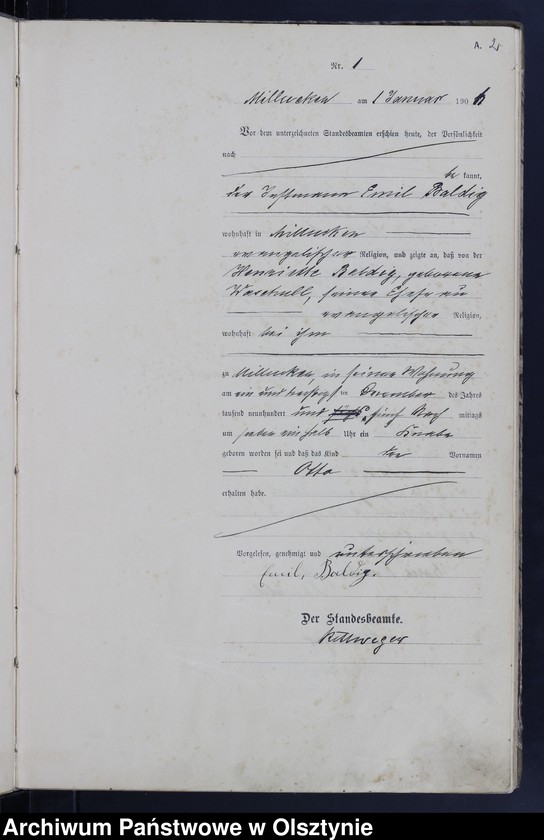 A. 2
Nr. 1
Millucken am 1 Januar 1906
Vor dem unterzeichneten Standesbeamten erschien heute, der Persönlichkeit
nach
be kannt,
der Instmann Emil Baldig
wohnhaft in Millucken
evangelischer Religion, und zeigte an, daß von der
Henriette Baldig, geborene
seiner Ehefrau
evangelischer Religion,
wohnhaft bei ihm
zu Millucken, in seiner Wohnung
am ein und dreißigsten December des Jahres
tausend neunhundert und fünf Nach mittags
um sieben einhalb Uhr ein Knabe
geboren worden sei und daß das Kind den Vornamen
Otto
erhalten habe.
Vorgelesen, genehmigt und unterschrieben
Emil, Baldig.
Der Standesbeamte.
Archiwum Państwowe w Olsztynie